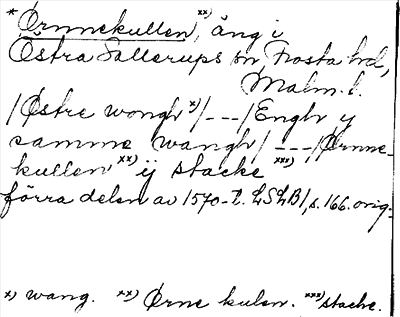 * Ørnnekullen, xx) äng i
Östra Sallerups sn, Frosta hd,
Malm. l.
/Østre wongh x)/---/Enghr y
samme wangh/---/Ørnne-
kullen xx) ij stacke xxx),
förra delen av 1570-t. LSLB1, s. 166. orig.
x) wang. xx) Ørne kulen. xxx) stache.